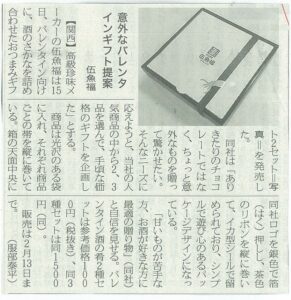 意外なバレンタ
インギフト提案
伍魚福
【関西】高級珍味メ
ーカーの伍魚福は15
日、バレンタイン向け
に、酒のさかなを詰め
合わせたおつまみギフ
ト2セット＝写
真＝を発売し
た。
同社は「あり
きたりのチョコ
レートではな
く、ちょっと意
外なものを贈っ
て驚かせたい。
そんなニーズに
応えようと、当社の人
気商品の中から2、3
品を選んで、手頃な価
格のギフトを企画し
た」とする。
商品は光沢のある袋
に入れ、それぞれ商品
ごとの帯を縦に巻いて
いる。箱の天面中央に
同社ロゴを銀色で箔
（はく）押しし、茶色
のリボンを縦に巻い
て、イカ型シールで留
められており、シンプ
ルで遊び心のあるパッ
ケージデザインになっ
ている。
「甘いものが苦手な
方、お酒が好きな方に
最適の贈り物」（同社）
と自信を見せる。バレ
ンタイン酒肴2種セッ
トは参考価格100
0円（税抜き）、同3
種セットは同1500
円（同）。
販売は2月13日ま
で。（服部泰平）
伍魚福